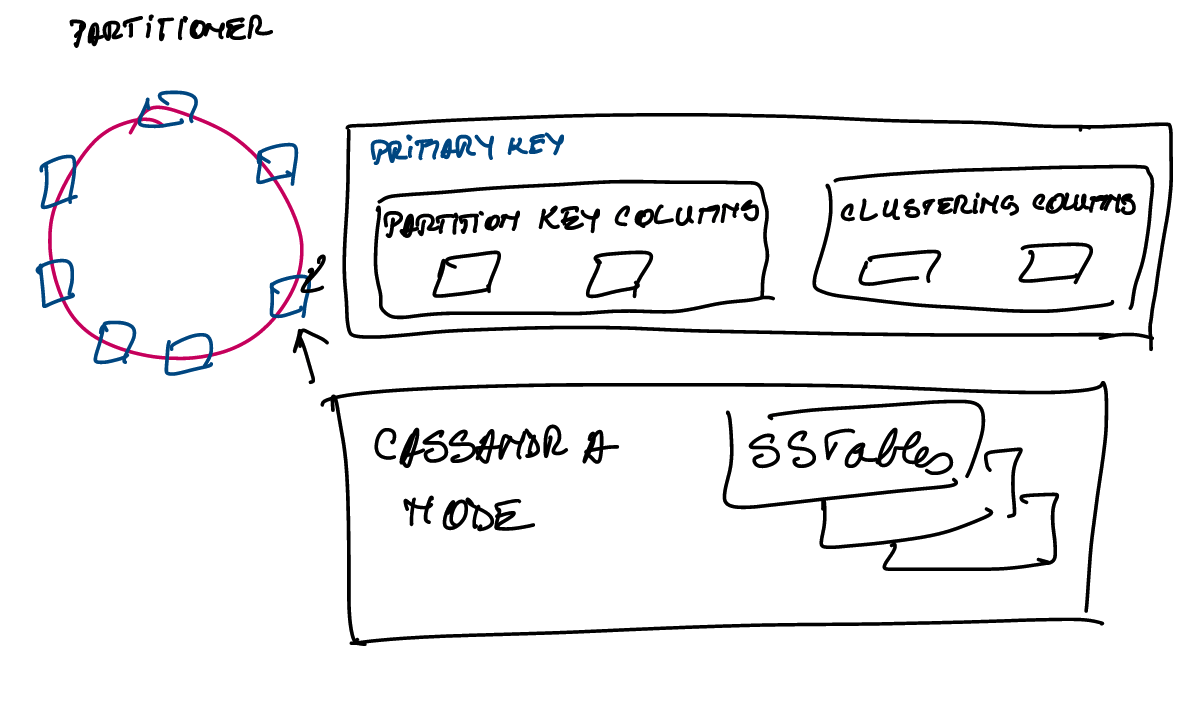 PARTITIONER
PRIMARY KEY
PARTITION KEY COLUMNS
CLUSTERING COLUMNS
CASSANDRA
NODE
SSTables